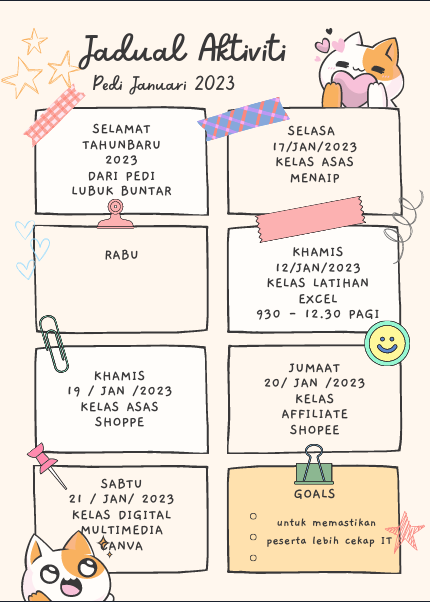 Jadual Aktiviti
Pedi Januari 2023
SELAMAT
TAHUNBARU
2023
DARI PEDI
LUBUK BUNTAR
SELASA
17/JAN/2023
KELAS ASAS
MENAIP
RABU
KHAMIS
12/JAN/2023
KELAS LATIHAN
EXCEL
930 - 12.30 PAGI
KHAMIS
19 / JAN /2023
KELAS ASAS
SHOPPE
JUMAAT
20/ JAN /2023
KELAS
AFFILIATE
SHOPEE
SABTU
21 / JAN/ 2023
KELAS DIGITAL
MULTIMEDIA
CANVA
GOALS
untuk memastikan
peserta lebih cekap IT